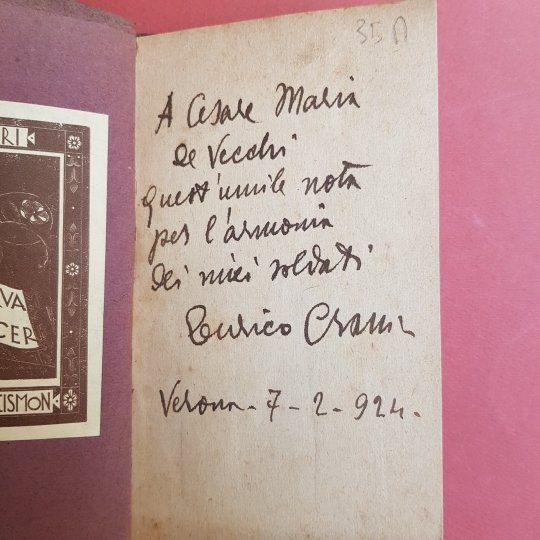 RI
VA
CER
CISMON
35 A
A Cesare Maria
de Vecchi
quest'umile nota
per l'armonia
dei miei soldati
Enrico
Verona - 7 - 2 - 924.